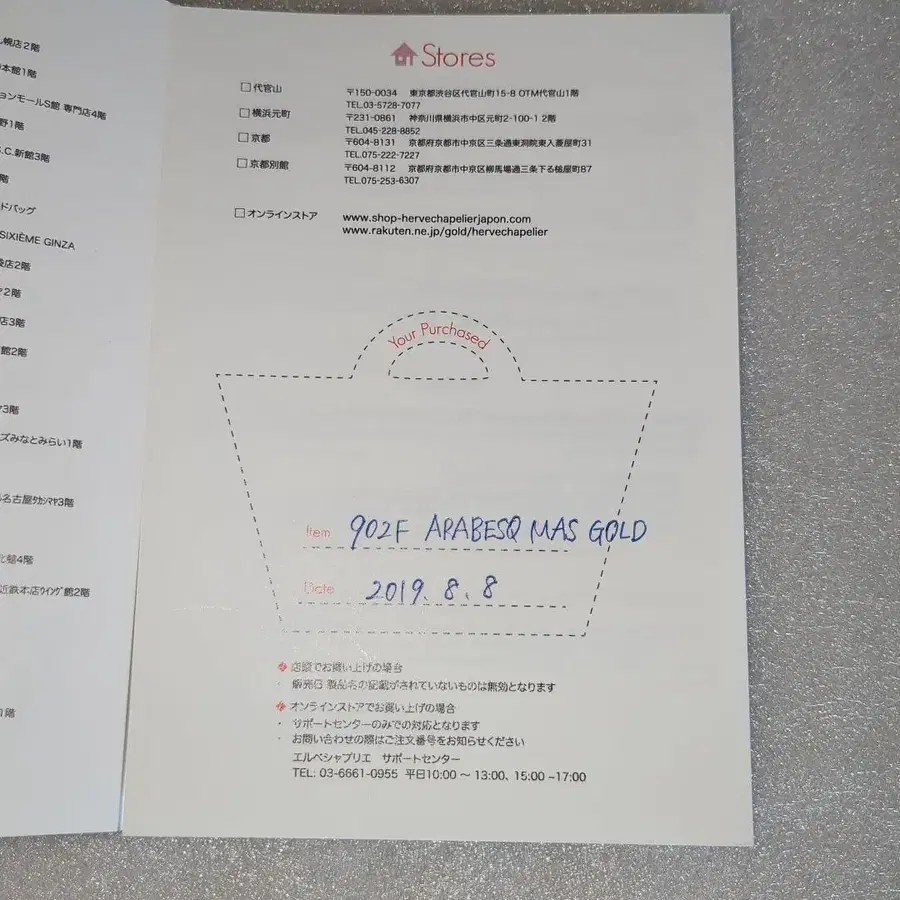 幌店2階
本館1階
ョンモールS館 専門店4階
野1階
S.C.新館3階
階
ドバッグ
SIXIÈME GINZA
店2階
2階
店3階
館2階
3階
ズみなとみらい1階
名古屋タカシマヤ3階
4階
近鉄本店ウイング館2階
階
Stores
代官山 〒150-0034 東京都渋谷区代官山町15-8 OTM代官山1階
TEL.03-5728-7077
横浜元町 〒231-0861 神奈川県横浜市中区元町2-100-1 2階
TEL.045-228-8852
京都 〒604-8131 京都府京都市中京区三条通東洞院東入菱屋町31
TEL.075-222-7227
京都別館 〒604-8112 京都府京都市中京区柳馬場通三条下る槌屋町87
TEL.075-253-6307
オンラインストア www.shop-hervechapelierjapon.com
www.rakuten.ne.jp/gold/hervechapelier
Your Purchased
Item 902F ARABESQ MAS GOLD
Date 2019. 8. 8
店頭でお買い上げの場合
・ 販売日 製品名の記載がされていないものは無効となります
オンラインストアでお買い上げの場合
・ サポートセンターのみでの対応となります
・ お問い合わせの際はご注文番号をお知らせください
エルベシャプリエ サポートセンター
TEL: 03-6661-0955 平日10:00 ～ 13:00、15:00 ~17:00